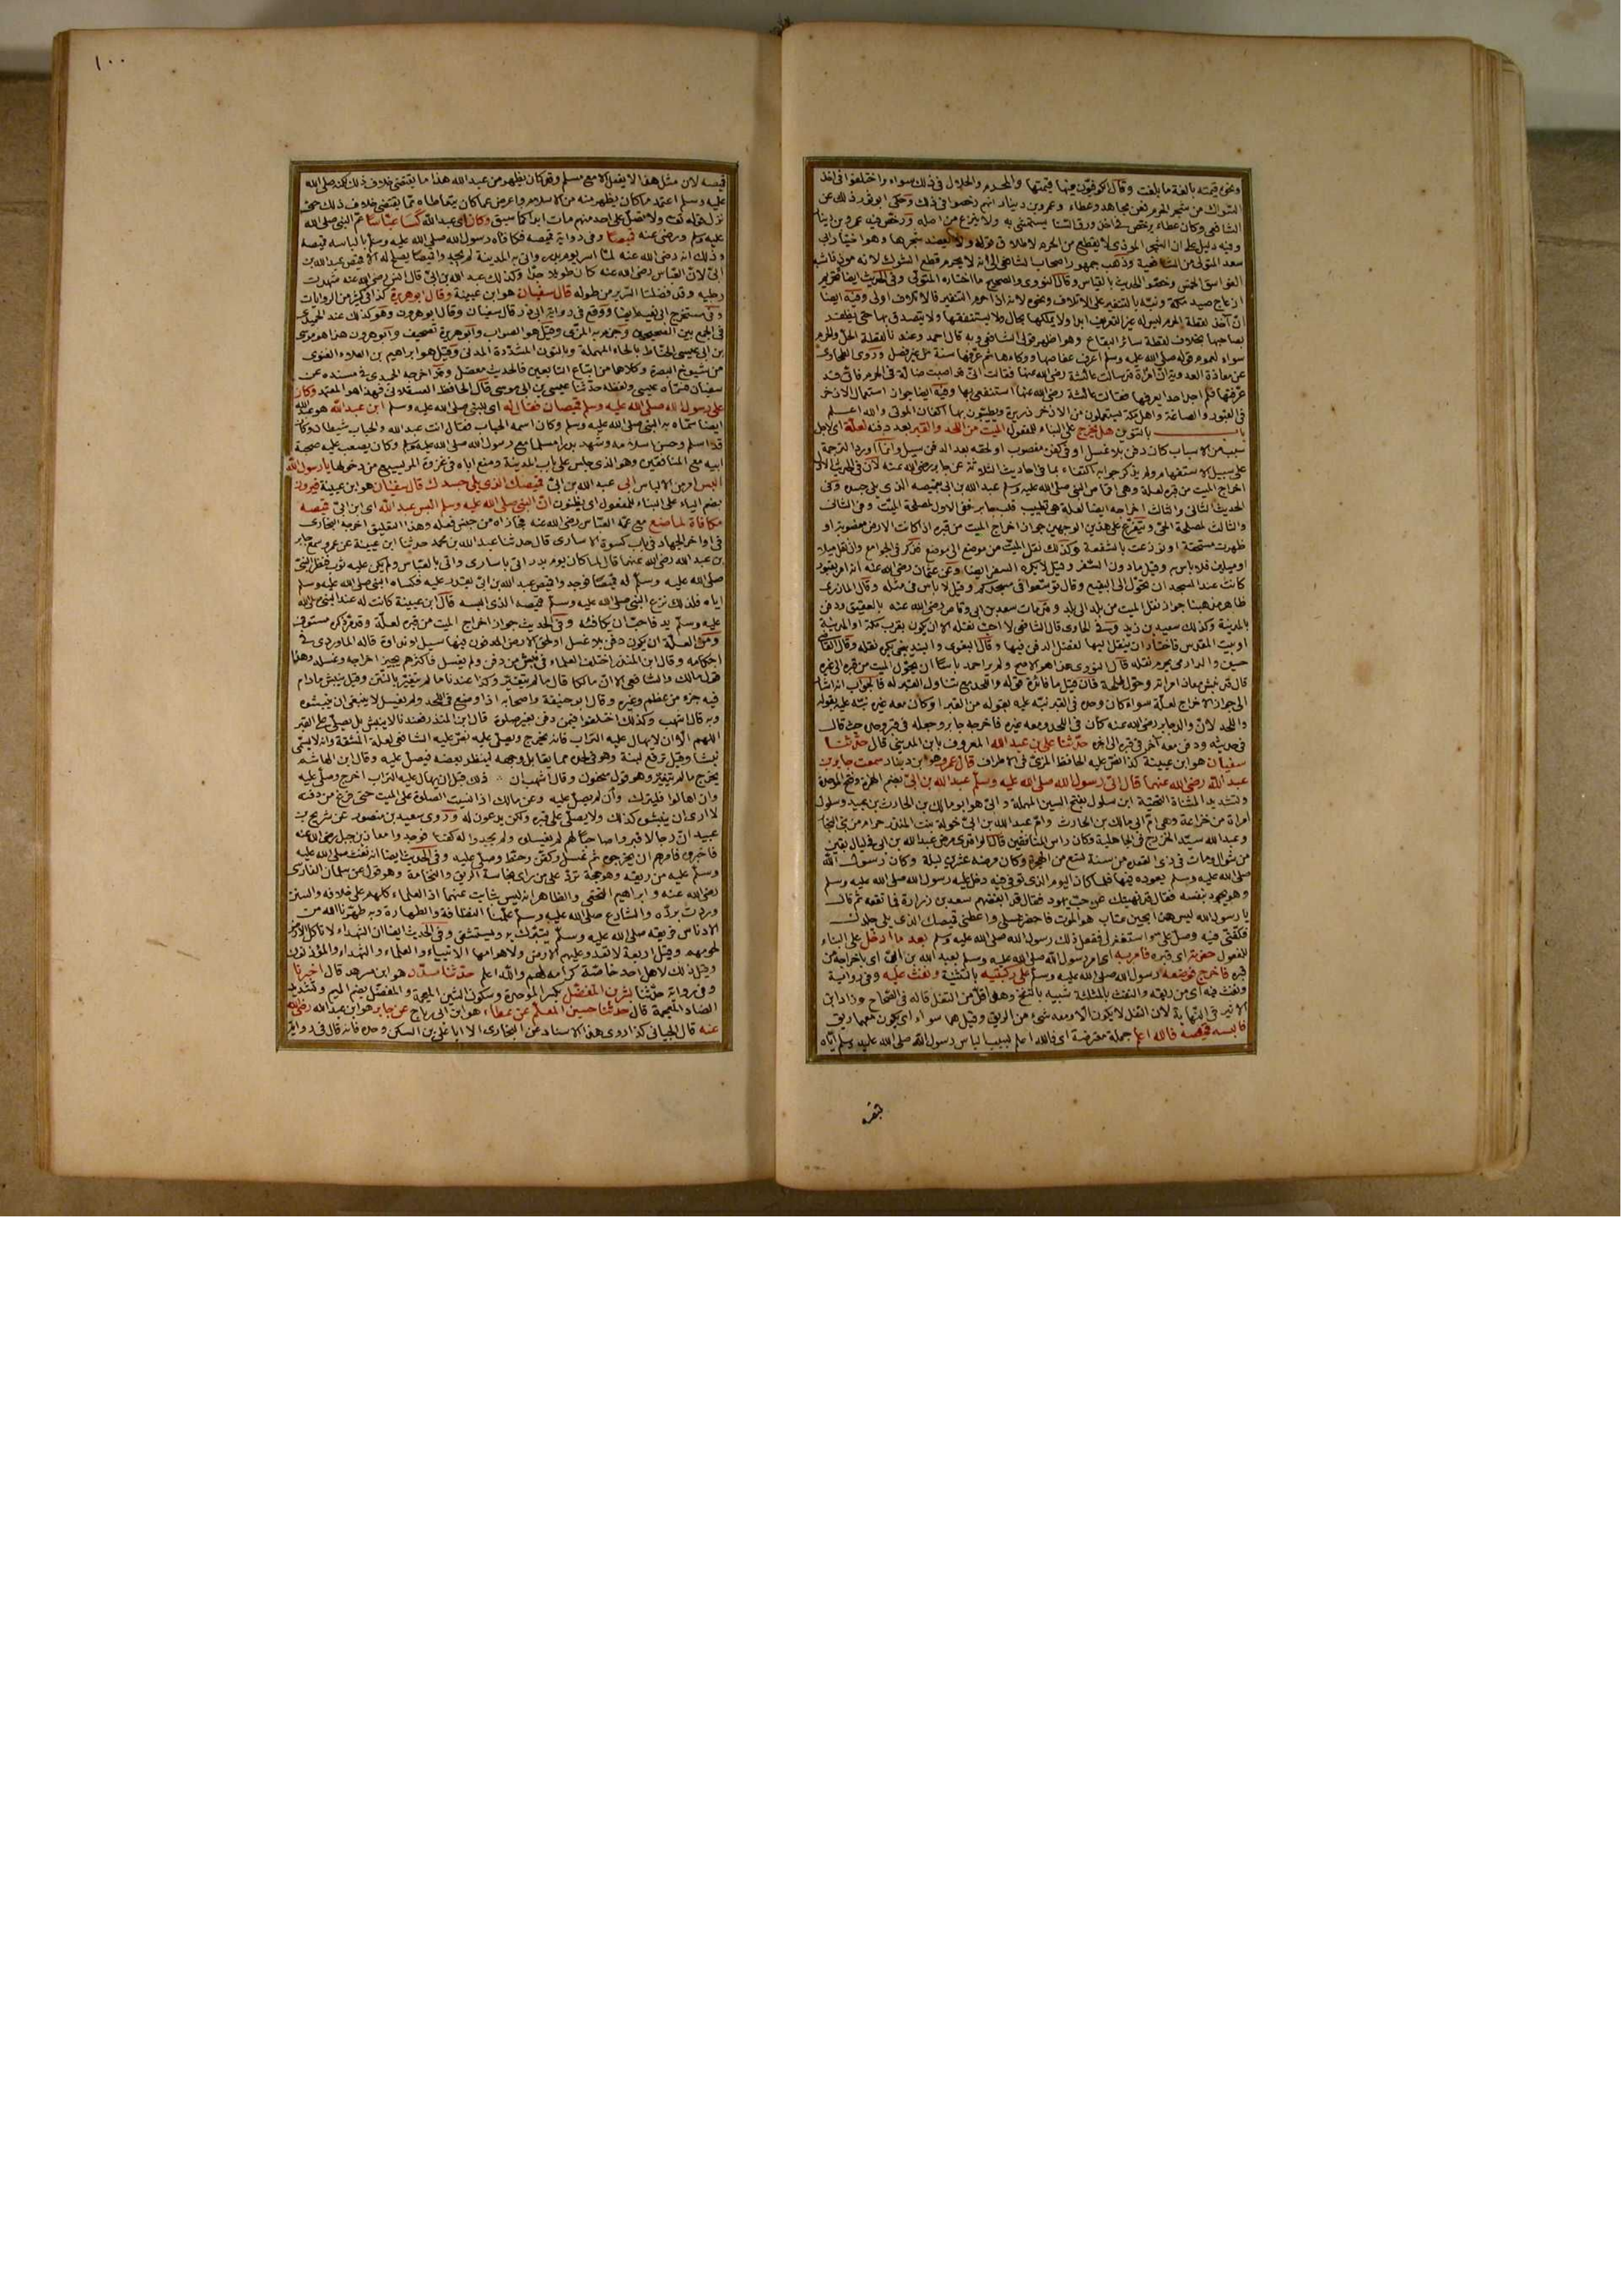 ونحوه قيمته بالغة ما بلغت وقال الكوفيون فيها قيمتها والمحرم والحلال في ذلك سواء واختلفوا في اخذ
السواك من شجر الحرم فعن مجاهد وعطاء وعمرو بن دينار انهم رخصوا في ذلك وحكى ابو ثور ذلك عن
الشافعي وكان عطاء يرخص في اخذ ورق السنا يستمشى به ولا ينزع من اصله ورخص فيه عمرو بن دينار
وفيه دليل على ان الشجر المؤذي لا يقطع من الحرم لاطلاق قوله ولا يعضد شجرها وهو اختيار ابي
سعد المتولي من الشافعية وذهب جمهور اصحاب الشافعي الى انه لا يحرم قطع الشوك لانه موذ فاشبه
الفواسق الخمس وخصوا الحديث بالقياس وقال النووي والصحيح ما اختاره المتولي وفي الحديث ايضا تحريم
ازعاج صيد مكة ونبه بالتنفير على الاتلاف ونحوه لانه اذا حرم التنفير فالاتلاف اولى وفيه ايضا
ان آخذ لقطة الحرم ليس له غير التعريف ابدا ولا يملكها بحال ولا يستنفقها ولا يتصدق بها حتى يظفر
بصاحبها بخلاف لقطة سائر البقاع وهو اظهر قولي الشافعي وبه قال احمد وعندنا لقطة الحل والحرم
سواء لعموم قوله صلى الله عليه وسلم اعرف عفاصها ووكاءها ثم عرفها سنة من غير فصل وروى الطحاوي
عن معاذة العدوية ان امراة قد سالت عائشة رضي الله عنها فقالت اني قد اصبت ضالة في الحرم فاني قد
عرفتها فلم اجد احدا يعرفها فقالت عائشة رضي الله عنها استنفعي بها وفيه ايضا جواز استعمال الاذخر
في القبور والصاغة واهل مكة يستعملون من الاذخر ذريرة ويطيبون بها اكفان الموتى والله اعلم
باب بالتنوين هل يخرج على البناء للمفعول الميت من اللحد والقبر بعد دفنه لعلة اي لاجل
سبب من الاسباب كان دفن بلا غسل او في كفن مغصوب او لحقه بعد الدفن سيل وانما اورد الترجمة
على سبيل الاستفهام ولم يذكر جوابه اكتفاء بما في احاديث الثلاثة عن جابر رضي الله عنه لان في الحديث الاول
اخراج الميت من قبره لعلة وهي اقماص النبي صلى الله عليه وسلم عبد الله بن ابي بقميصه الذي يلي جسده وفي
الحديث الثاني والثالث اخراجه ايضا لعلة هي تطييب قلب جابر ففي الاول لمصلحة الميت وفي الثاني
والثالث لمصلحة الحي ويتفرع على هذين الوجهين جواز اخراج الميت من قبره اذا كانت الارض مغصوبة او
ظهرت مستحقة او توزعت بالشفعة وكذلك نقل الميت من موضع الى موضع فذكر في الجوامع وان نقل ميلا
او ميلين فلا باس وقيل ما دون السفر وقيل لا يكره السفر ايضا وعن عثمان رضي الله عنه انه امر بقبور
كانت عند المسجد ان تحول الى البقيع وقال توسعوا في مسجدكم وقيل لا باس في مثله وقال المازري
ظاهر مذهبنا جواز نقل الميت من بلد الى بلد وقد مات سعد بن ابي وقاص رضي الله عنه بالعقيق ودفن
بالمدينة وكذلك سعيد بن زيد وفي الحاوي قال الشافعي لا احب نقله الا ان يكون بقرب مكة او المدينة
او بيت المقدس فاختار ان ينقل اليها لفضل الدفن فيها وقال البغوي والبندنيجي يكره نقله وقال القاضي
حسين والدارمي يحرم نقله قال النووي هذا هو الاصح ولم ير احمد باسا ان يحول الميت من قبره الى غيره
قال قد نبش معاذ امراته وحول طلحة فان قيل ما فائدة قوله واللحد مع تناول القبر له فالجواب انه اشار
الى جواز الاخراج لعلة سواء كان وحده في القبر نبه عليه بقوله من القبر او كان معه غيره نبه عليه بقوله
واللحد لان والد جابر رضي الله عنه كان في اللحد ومعه غيره فاخرجه جابر وجعله في قبر وحده حيث قال
في حديثه ودفن معه آخر في قبره الى آخره حدثنا علي بن عبد الله المعروف بابن المديني قال حدثنا
سفيان هو ابن عيينة كذا نص عليه الحافظ المزي في الاطراف قال عمرو هو ابن دينار سمعت جابر بن
عبد الله رضي الله عنهما قال اتى رسول الله صلى الله عليه وسلم عبد الله بن ابي بضم الهمزة وفتح الموحدة
وتشديد المثناة التحتية ابن سلول بفتح السين المهملة وابي هو ابو مالك بن الحارث بن عبيد وسلول
امراة من خزاعة وهي ام ابي مالك بن الحارث وام عبد الله بن ابي خولة بنت المنذر بن حرام من بني النجار
وعبد الله سيد الخزرج في الجاهلية وكان راس المنافقين قال الواقدي مرض عبد الله بن ابي في ليال بقين
من شوال ومات في ذي القعدة من سنة تسع من الهجرة وكان مرضه عشرين ليلة وكان رسول الله
صلى الله عليه وسلم يعوده فيها فلما كان اليوم الذي توفي فيه دخل عليه رسول الله صلى الله عليه وسلم
وهو يجود بنفسه فقال قد نهيتك عن حب يهود فقال قد ابغضهم سعد بن زرارة فما نفعه ثم قال
يا رسول الله ليس هذا بحين عتاب هو الموت فاحضر غسلي واعطني قميصك الذي يلي جلدك
فكفني فيه وصل علي واستغفر لي ففعل ذلك رسول الله صلى الله عليه وسلم بعد ما ادخل على البناء
للمفعول حفرته اي قبره فامر به اي امر رسول الله صلى الله عليه وسلم بعبد الله بن ابي اي باخراجه من
قبره فاخرج فوضعه رسول الله صلى الله عليه وسلم على ركبتيه بالتثنية ونفث عليه وفي رواية
ونفث فيه اي من ريقه والنفث بالمثلثة شبيه بالنفخ وهو اقل من التفل قاله في الصحاح وزاد ابن
الاثير في النهاية لان التفل لا يكون الا ومعه شيء من الريق وقيل هما سواء اي يكون معهما ريق
فالبسه قميصه فالله اعلم جملة معترضة اي فالله اعلم بسبب الباس رسول الله صلى الله عليه وسلم اياه
١٠٠
قميصه لان مثل هذا لا يفعل الا مع مسلم وقد كان يظهر من عبد الله هذا ما يقتضي خلاف ذلك لكنه صلى الله
عليه وسلم اعتمد ما كان يظهر منه من الاسلام واعرض عما كان يتعاطاه مما يقتضي خلاف ذلك حتى
نزل قوله تعالى ولا تصل على احد منهم مات ابدا كما سبق وكان اي عبد الله كسا عباسا عم النبي صلى الله
عليه وسلم ورضي عنه قميصا وفي رواية قميصه فكافاه رسول الله صلى الله عليه وسلم بالباسه قميصه
وذلك انه رضي الله عنه لما اسر يوم بدر واتى به المدينة لم يجدوا قميصا يصلح له الا قميص عبد الله بن
ابي لان العباس رضي الله عنه كان طويلا جدا وكذلك عبد الله بن ابي قال انس رضي الله عنه شهدت
رجليه وقد فضلتا السرير من طوله قال سفيان هو ابن عيينة وقال ابو هريرة كذا في كثير من الروايات
وفي مستخرج ابي نعيم ايضا ووقع في رواية ابي ذر قال سفيان وقال ابو هرون وهو كذلك عند الحميدي
في الجمع بين الصحيحين وجزم به المزي وقيل هو الصواب وابو هريرة تصحيف وابو هرون هذا هو موسى
بن ابي عيسى الحناط بالحاء المهملة وبالنون المشددة المدني وقيل هو ابراهيم بن العلاء الغنوي
من شيوخ البصرة وكلاهما من اتباع التابعين فالحديث معضل وقد اخرجه الحميدي في مسنده عن
سفيان فسماه عيسى ولفظه حدثنا عيسى بن ابي موسى قال الحافظ العسقلاني فهذا هو المعتمد وكان
على رسول الله صلى الله عليه وسلم قميصان فقال له اي للنبي صلى الله عليه وسلم ابن عبد الله هو عبد الله
ايضا سماه به النبي صلى الله عليه وسلم وكان اسمه الحباب فقال انت عبد الله والحباب شيطان وكان
قد اسلم وحسن اسلامه وشهد بدرا مسلما مع رسول الله صلى الله عليه وسلم وكان يصعب عليه صحبة
ابيه مع المنافقين وهو الذي جلس على باب المدينة ومنع اباه في غزوة المريسيع من دخولها يا رسول الله
البس امر من الالباس ابي عبد الله بن ابي قميصك الذي يلي جسدك قال سفيان هو ابن عيينة فيرون
بضم الياء على البناء للمفعول اي يظنون ان النبي صلى الله عليه وسلم البس عبد الله اي ابن ابي قميصه
مكافاة لما صنع مع عمه العباس رضي الله عنه فجازاه من جنس فعله وهذا التعليق اخرجه البخاري
في اواخر الجهاد في باب كسوة الاسارى قال حدثنا عبد الله بن محمد حدثنا ابن عيينة عن عمرو سمع جابر
بن عبد الله رضي الله عنهما قال لما كان يوم بدر اتي باسارى واتي بالعباس ولم يكن عليه ثوب فنظر النبي
صلى الله عليه وسلم له قميصا فوجدوا قميص عبد الله بن ابي يقدر عليه فكساه النبي صلى الله عليه وسلم
اياه فلذلك نزع النبي صلى الله عليه وسلم قميصه الذي البسه قال ابن عيينة كانت له عند النبي صلى الله
عليه وسلم يد فاحب ان يكافئه وفي الحديث جواز اخراج الميت من قبره لعلة وقد مر ذكره مستوفى
ومن العلة ان يكون دفن بلا غسل او لحق الارض المدفون فيها سيل او نداوة قاله الماوردي في
احكامه وقال ابن المنذر اختلف العلماء في نبش من دفن ولم يغسل فاكثرهم يجيز اخراجه وغسله وهذا
قول مالك والشافعي الا ان مالكا قال ما لم يتغير وكذا عندنا ما لم يتغير بالنتن وقيل ينبش ما دام
فيه جزء من عظم وغيره وقال ابو حنيفة واصحابه اذا وضع في اللحد ولم يغسل لا ينبغي ان ينبشوه
وبه قال اشهب وكذلك اختلفوا فيمن دفن بغير صلوة قال ابن المنذر فعندنا لا ينبش بل يصلى على القبر
اللهم الا ان لا يهال عليه التراب فانه يخرج ويصلى عليه نص عليه الشافعي لعلة المشقة وانه لا يسمى
نبشا وقيل ترفع لبنة وهو في لحده مما يقابل وجهه لينظر بعضه فيصلي عليه وقال ابن القاسم
يخرج ما لم يتغير وهو قول سحنون وقال اشهب ان ذكر ذلك قبل ان يهال عليه التراب اخرج وصلى عليه
وان اهالوا فليترك وان لم يصل عليه وعن مالك اذا نسيت الصلوة على الميت حتى فرغ من دفنه
لا ارى ان ينبشوه لذلك ولا يصلى على قبره ولكن يدعون له وروى سعيد بن منصور عن شريح بن
عبيد ان رجالا قبروا صاحبا لهم لم يغسلوه ولم يجدوا له كفنا فوجدوا معاذ بن جبل رضي الله عنه
فاخبروه فامرهم ان يخرجوه ثم غسل وكفن وحنط وصلى عليه وفي الحديث ايضا انه نفث صلى الله عليه
وسلم عليه من ريقه وهو حجة ترد على من راى نجاسة الريق والنخامة وهو قول عن سلمان الفارسي
رضي الله عنه وابراهيم النخعي والظاهر انه ليس بثابت عنهما اذ العلماء كلهم على خلافه والسنن
وردت برده والشارع صلى الله عليه وسلم علمنا النظافة والطهارة وبه طهرنا الله من
الادناس فريقه صلى الله عليه وسلم يتبرك به ويستشفى وفي الحديث ايضا ان الشهداء لا تاكل الارض
لحومهم وقيل اربعة لا تعدو عليهم الارض ولا هوامها الانبياء والعلماء والشهداء والمؤذنون
وقيل ذلك لاهل احد خاصة كرامة لهم والله اعلم حدثنا مسدد هو ابن مسرهد قال اخبرنا
وفي رواية حدثنا بشر بن المفضل بكسر الموحدة وسكون الشين المعجمة والمفضل بضم الميم وتشديد
الضاد المعجمة قال حدثنا حسين المعلم عن عطاء هو ابن ابي رباح عن جابر هو ابن عبد الله رضي الله
عنه قال الجياني كذا روي هذا الاسناد عن البخاري الا ابا علي بن السكن وحده فانه قال في روايته